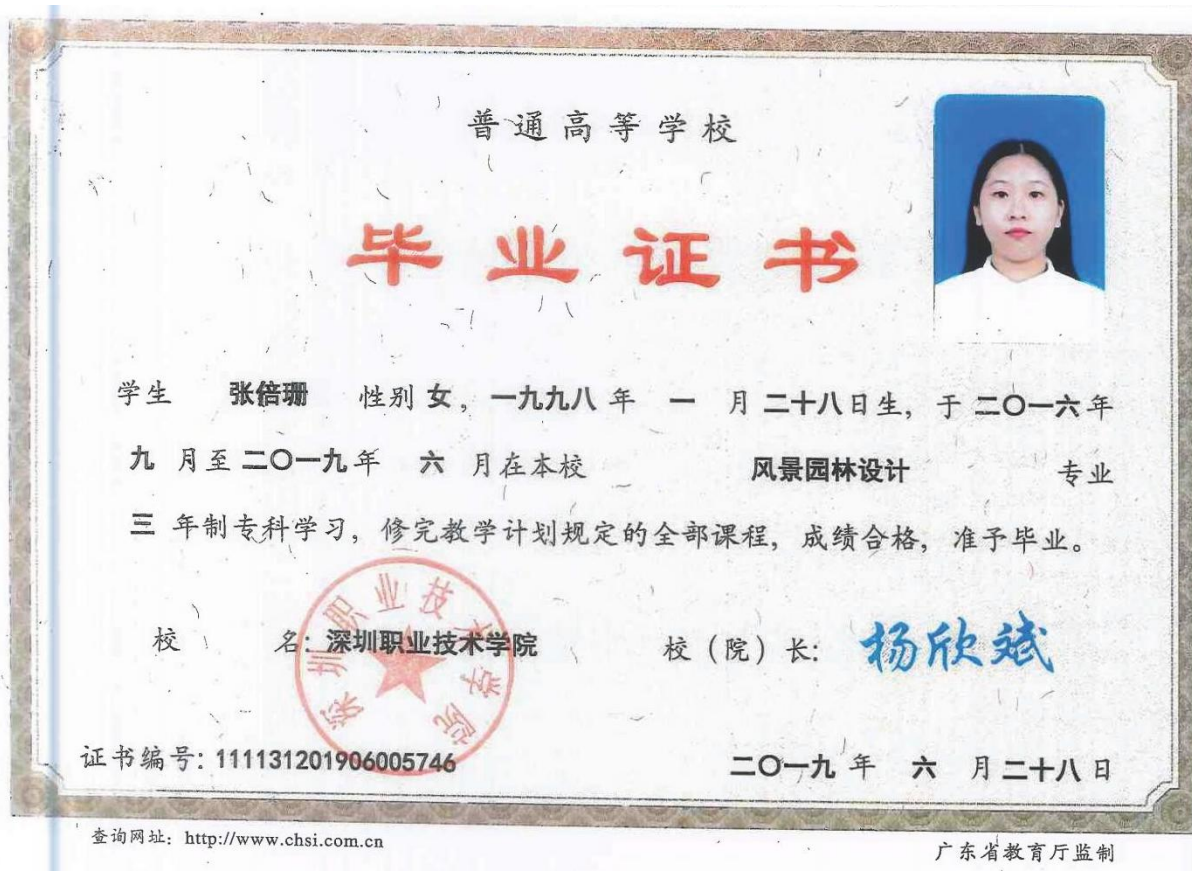 普通高等学校
毕业证书
学生 张倍珊 性别 女，一九九八 年 一 月 二十八日生，于 二〇一六年
九 月至 二〇一九年 六 月在本校 风景园林设计 专业
三 年制专科学习，修完教学计划规定的全部课程，成绩合格，准予毕业。
深圳职业技术学院
校 名：深圳职业技术学院 校（院）长：杨欣斌
证书编号：111131201906005746 二〇一九 年 六 月 二十八 日
查询网址：http://www.chsi.com.cn 广东省教育厅监制